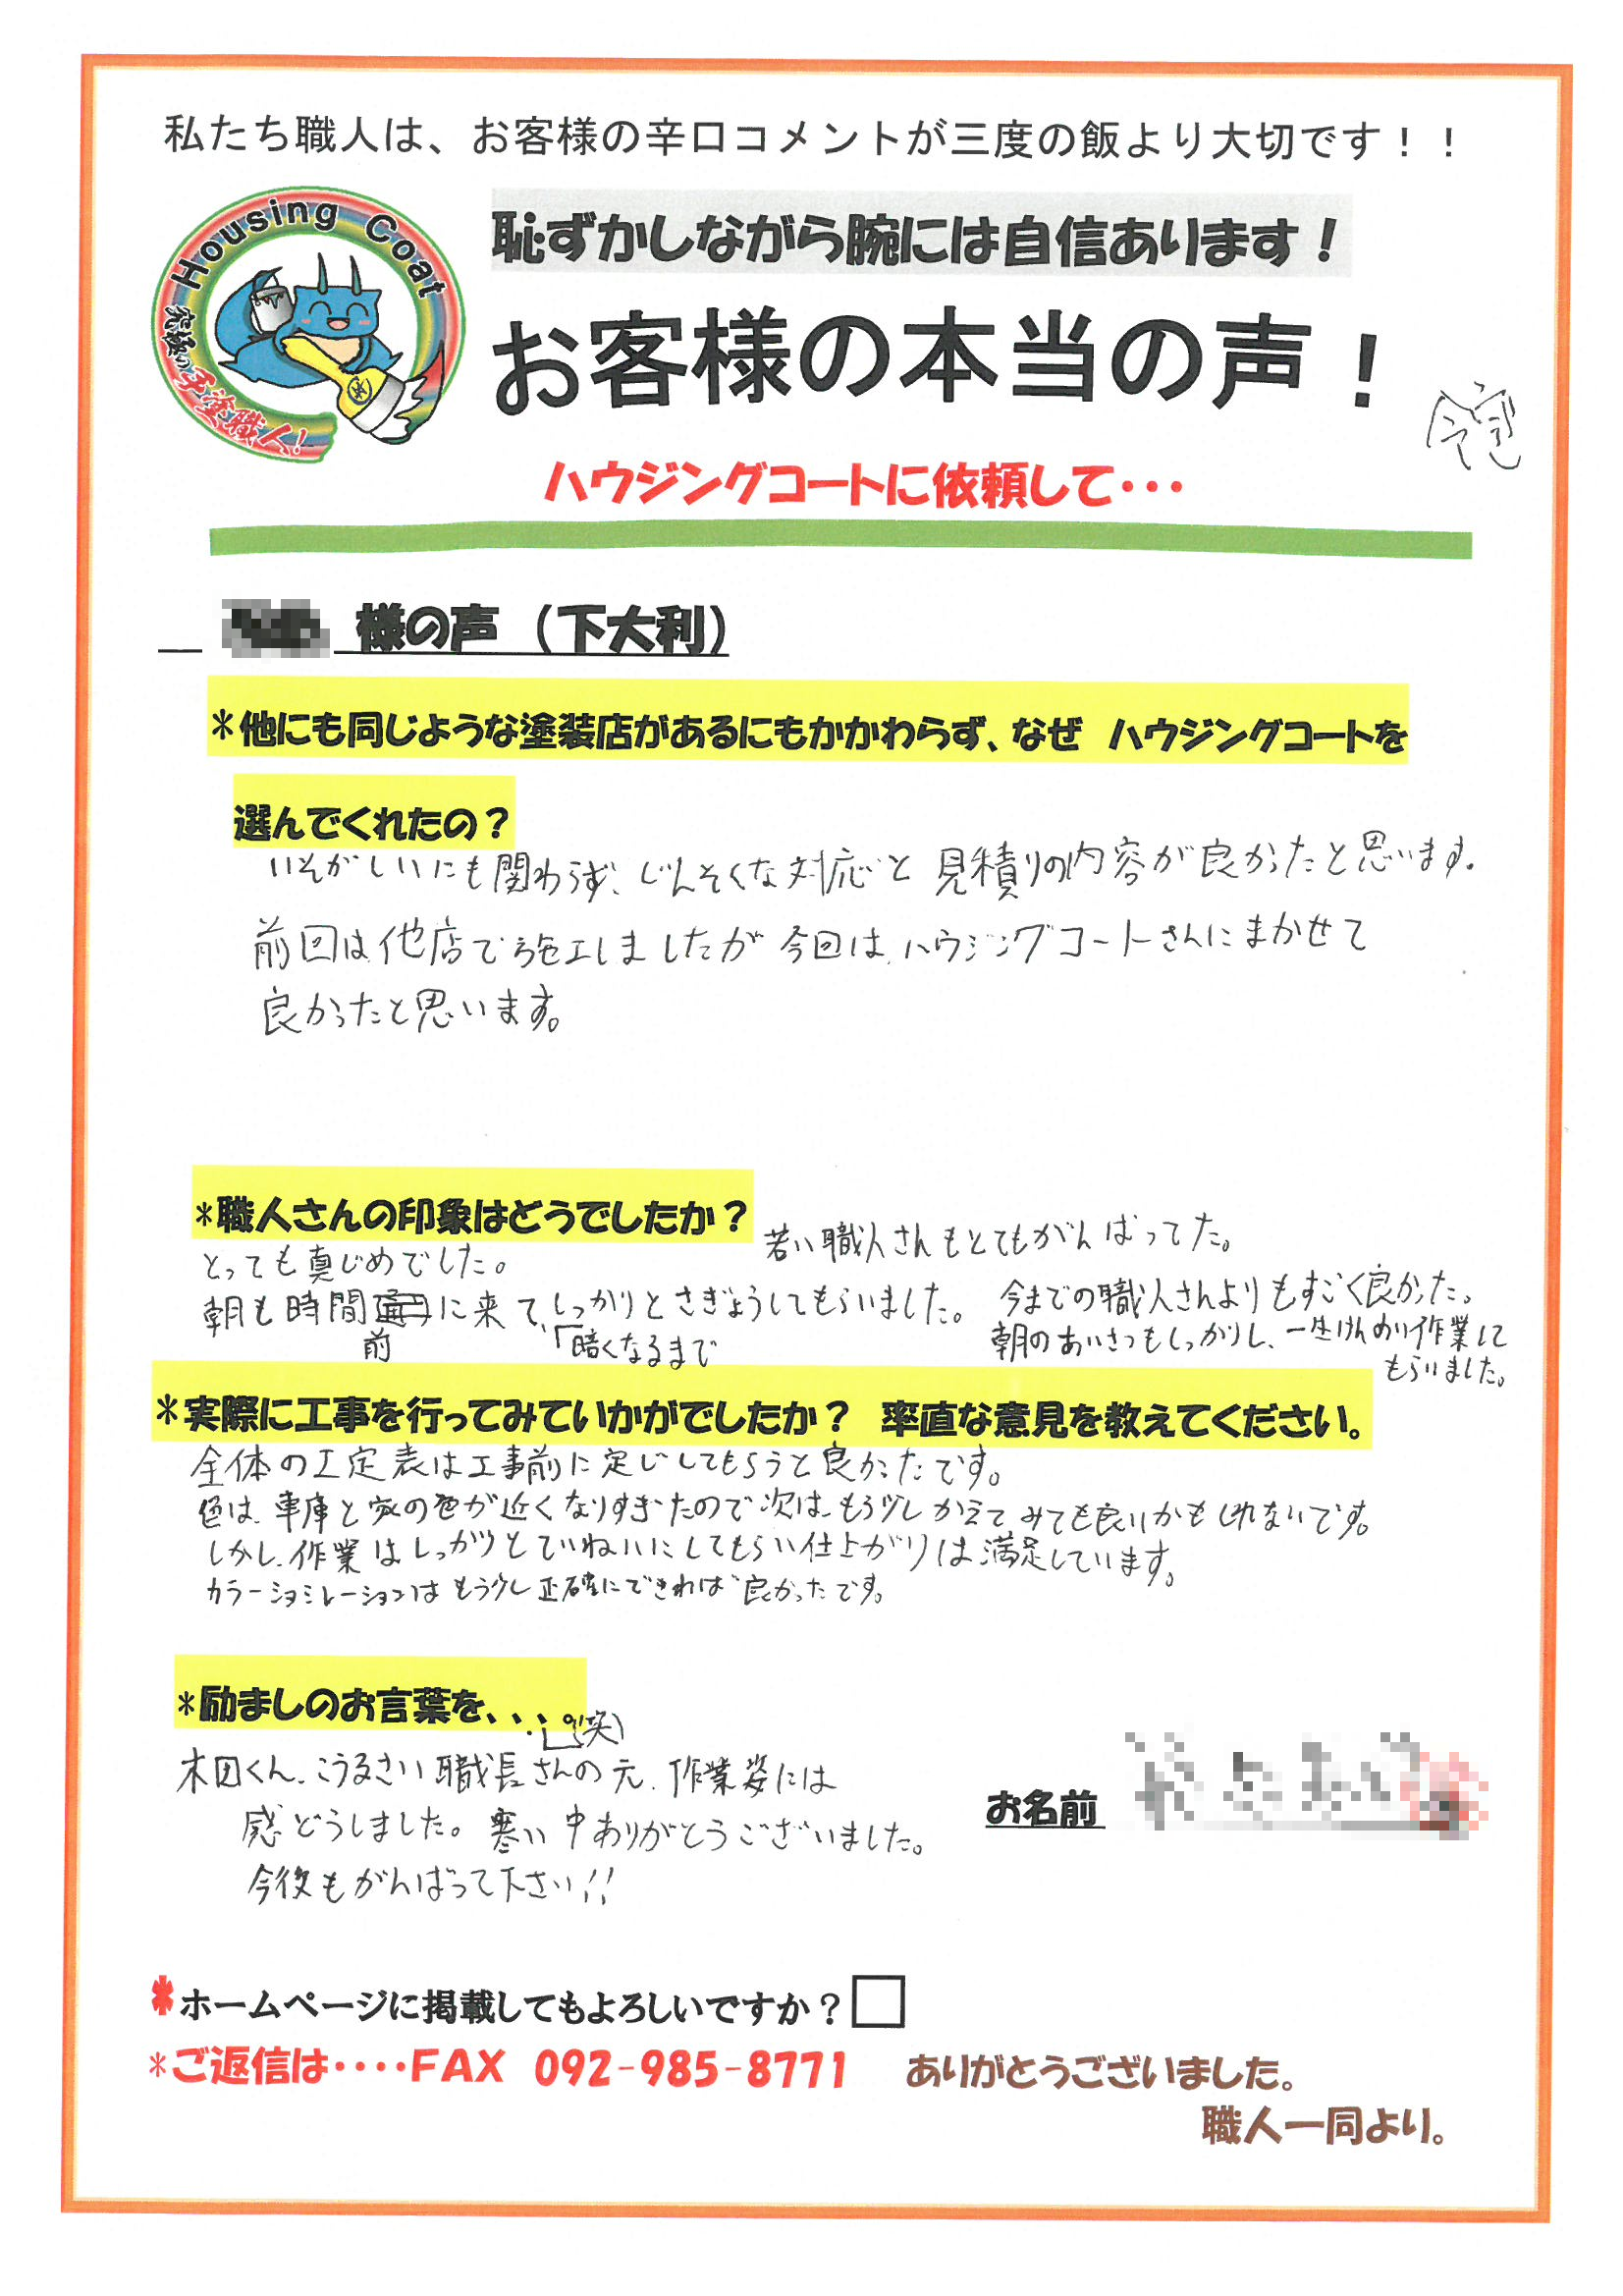 私たち職人は、お客様の辛口コメントが三度の飯より大切です！！
Housing Coat
究極の手塗職人!
恥ずかしながら腕には自信あります！
お客様の本当の声！
ハウジングコートに依頼して・・・
様の声（下大利）
*他にも同じような塗装店があるにもかかわらず、なぜ　ハウジングコートを
選んでくれたの？
いそがしいにも関わらず、じんそくな対応と見積りの内容が良かったと思います。
前回は他店で施工しましたが今回は、ハウジングコートさんにまかせて
良かったと思います。
*職人さんの印象はどうでしたか？
若い職人さんもとてもがんばってた。
とっても真じめでした。
朝も時間前に来て、しっかりとさぎょうしてもらいました。
「暗くなるまで
今までの職人さんよりもすごく良かった。
朝のあいさつもしっかりし、一生けんめい作業して
もらいました。
*実際に工事を行ってみていかがでしたか？　率直な意見を教えてください。
全体の工定表は工事前に定じしてもらうと良かったです。
色は、車庫と家の色が近くなりすぎたので次は、もう少しかえてみても良いかもしれないです。
しかし、作業はしっかりとていねいにしてもらい仕上がりは満足しています。
カラーショミレーションはもう少し正確にできれば良かったです。
*励ましのお言葉を、、、。
(笑)
木田くん、こうるさい職長さんの元、作業姿には
感どうしました。寒い中ありがとうございました。
今後もがんばって下さい!!
お名前
*ホームページに掲載してもよろしいですか？□
*ご返信は・・・・FAX 092-985-8771　ありがとうございました。
職人一同より。